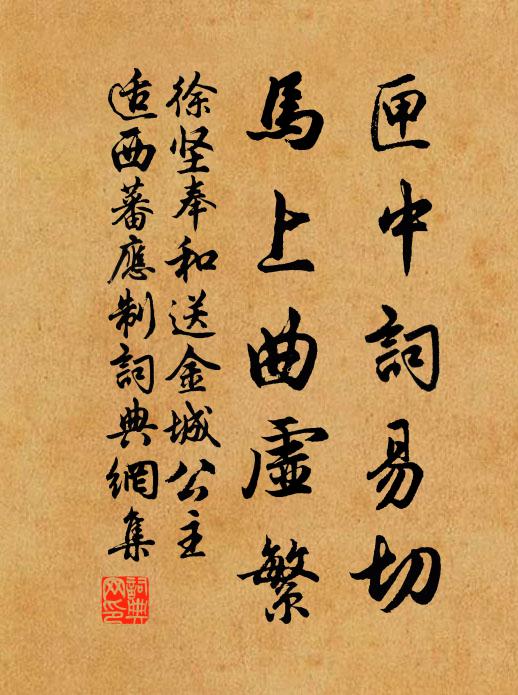 匣中詞易切
馬上曲虛繁
徐坚奉和送金城公主
适西蕃應制詞典網集
詞典網印